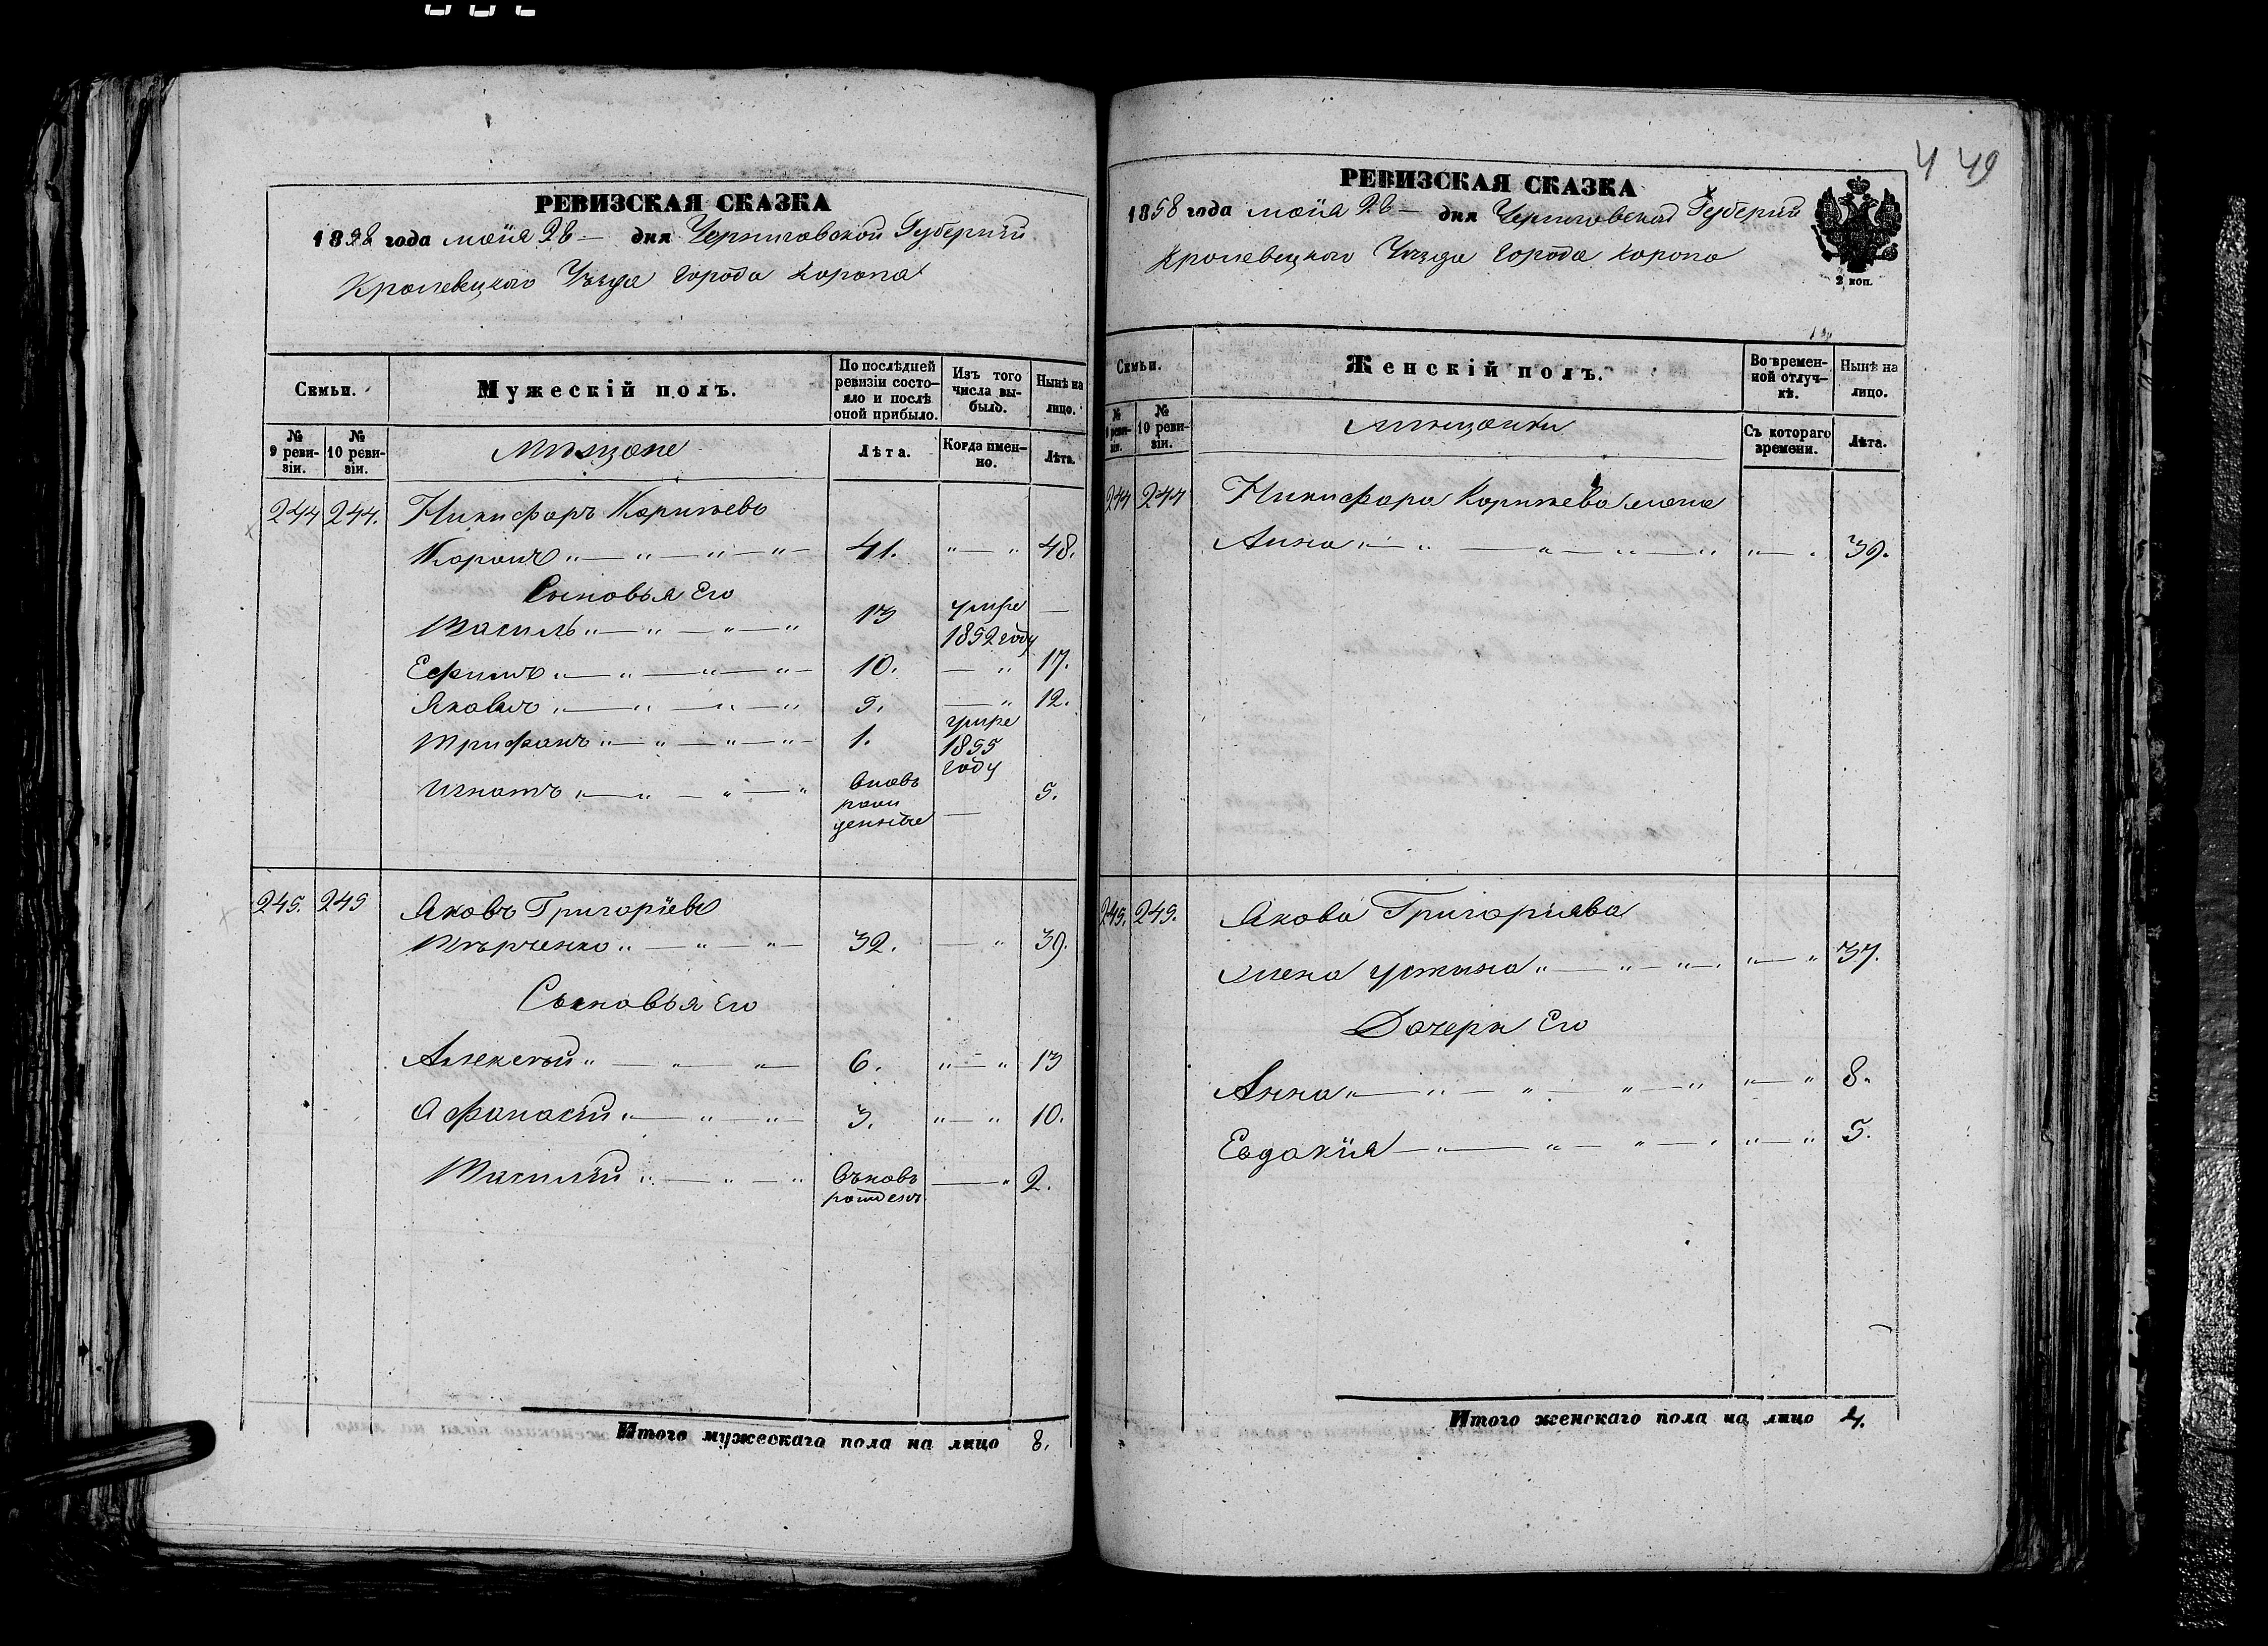 РЕВИЗСКАЯ СКАЗКА
1858 года маия 28 дня Черниговской Губерніи
Кролевецкаго Уѣзда города Коропа
Семьи.
Мужескій полъ.
По послѣдней ревизіи состояло и послѣ оной прибыло.
Изъ того числа выбыло.
Нынѣ на лицо.
№ 9 ревизіи.
№ 10 ревизіи.
Мѣщане
Лѣта.
Когда именно.
Лѣта.
244 244. Никифоръ
41. 48.
Сыновья Его
Василь 13 умре 1852 году
Ефимъ 10. 17.
Яковъ 5. 12.
Трифонъ 1. умре 1855 году
Игнатъ вновь 5.
245. 245 Яковъ Григоріевъ
32. 39.
Сыновья Его
Алексѣй 6. 13
Афанасій 3. 10.
Василій вновь рожденъ 2.
Итого мужескаго пола на лицо 8.
4 49
РЕВИЗСКАЯ СКАЗКА
1858 года маия 28 дня Черниговской Губерніи
Кролевецкаго Уѣзда города Коропа
2 коп.
Семьи.
Женскій полъ.
Во временной отлучкѣ.
Нынѣ на лицо.
№ 9 ревизіи.
№ 10 ревизіи.
Мѣщанки
Съ котораго времени.
Лѣта.
244 244 Никифора жена
Анна 39.
245. 245. Якова Григоріева
жена Устина 37.
Дочери Его
Анна 8.
Евдокія 5.
Итого женскаго пола на лицо 4.